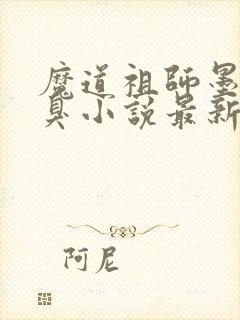 魔道祖師墨
臭小說最新
阿尼